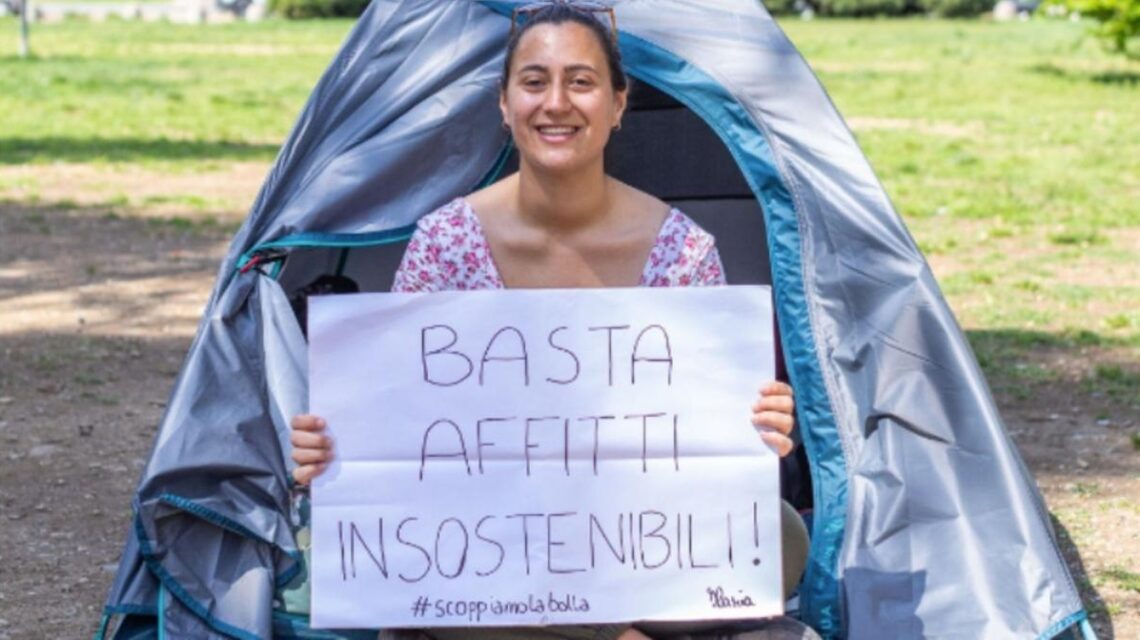 BASTA
AFFITTI
INSOSTENIBILI!
#scoppiamolabolla
Ilaria